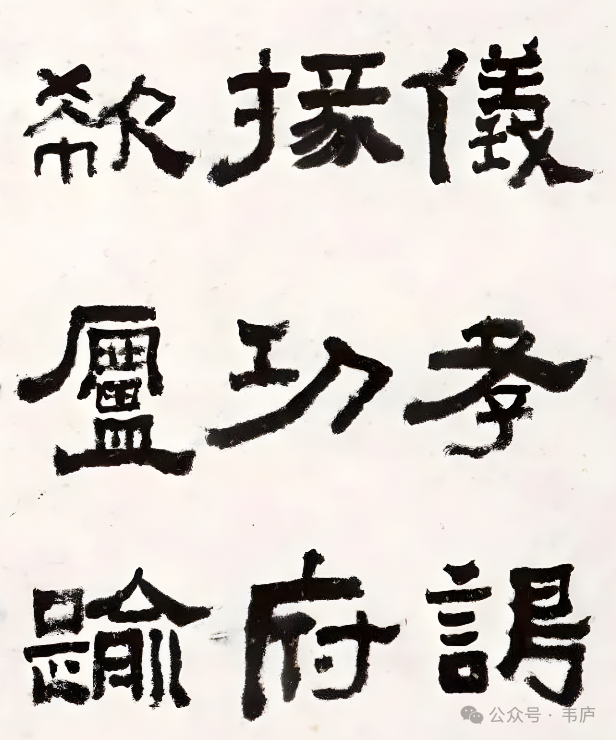 儀孝
掾功府
欷盧踰
公众号·韦庐